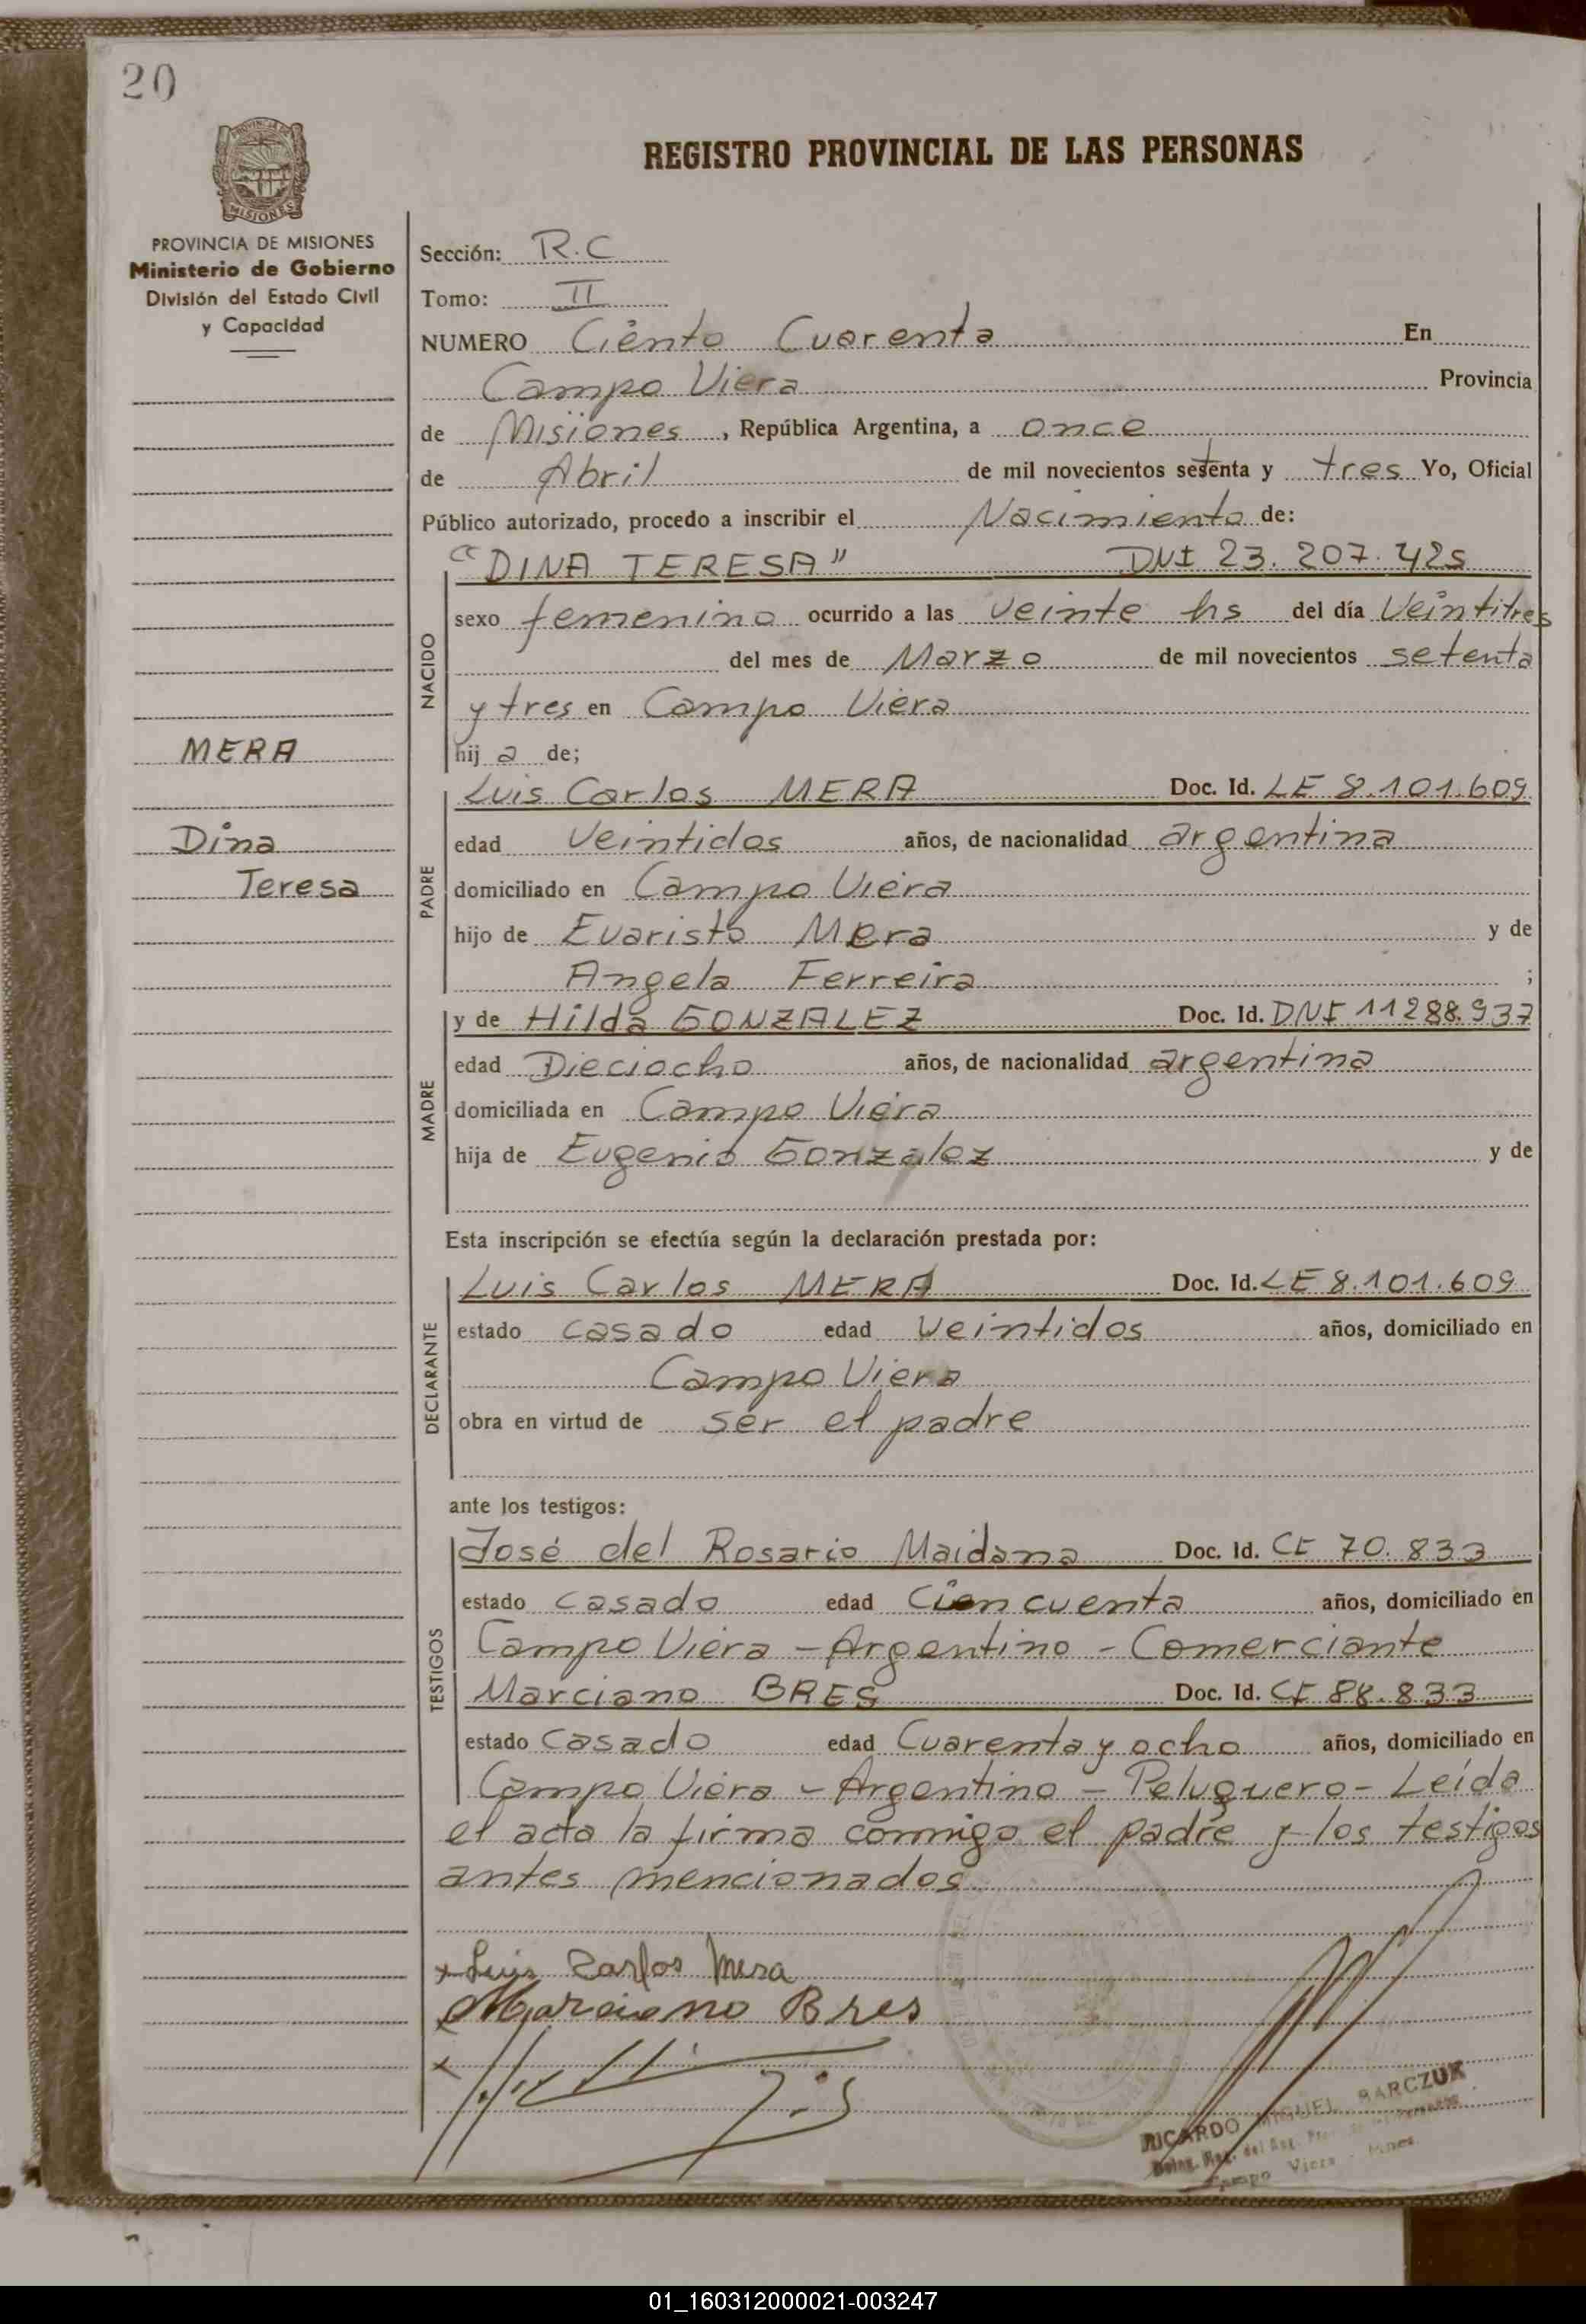 20
PROVINCIA DE MISIONES
Ministerio de Gobierno
División del Estado Civil
y Capacidad
MERA
Dina
Teresa
REGISTRO PROVINCIAL DE LAS PERSONAS
Sección: R.C
Tomo: II
NUMERO Ciento Cuarenta En
Campo Viera Provincia
de Misiones, República Argentina, a once
de Abril de mil novecientos setenta y tres Yo, Oficial
Público autorizado, procedo a inscribir el Nacimiento de:
NACIDO
"DINA TERESA" DNI 23.207.425
sexo femenino ocurrido a las veinte hs del día Veintitres
del mes de Marzo de mil novecientos setenta
y tres en Campo Viera
hij a de;
PADRE
Luis Carlos MERA Doc. Id. LE 8.101.609
edad Veintidos años, de nacionalidad argentina
domiciliado en Campo Viera
hijo de Evaristo Mera y de
Angela Ferreira ;
MADRE
y de Hilda GONZALEZ Doc. Id. DNI 11288.937
edad Dieciocho años, de nacionalidad argentina
domiciliada en Campo Viera
hija de Eugenio Gonzalez y de
Esta inscripción se efectúa según la declaración prestada por:
DECLARANTE
Luis Carlos MERA Doc. Id. LE 8.101.609
estado casado edad Veintidos años, domiciliado en
Campo Viera
obra en virtud de ser el padre
ante los testigos:
TESTIGOS
José del Rosario Maidana Doc. Id. CI 70.833
estado casado edad Ciencuenta años, domiciliado en
Campo Viera - Argentino - Comerciante
Marciano BRES Doc. Id. CI 88.833
estado Casado edad Cuarenta y ocho años, domiciliado en
Campo Viera - Argentino - Peluquero - Leída
el acta la firma conmigo el padre y los testigos
antes mencionados
x Luis Carlos Mera
x Marciano Bres
x
RICARDO MIGUEL BARCZUK
Campo Viera - Mnes.
01_160312000021-003247